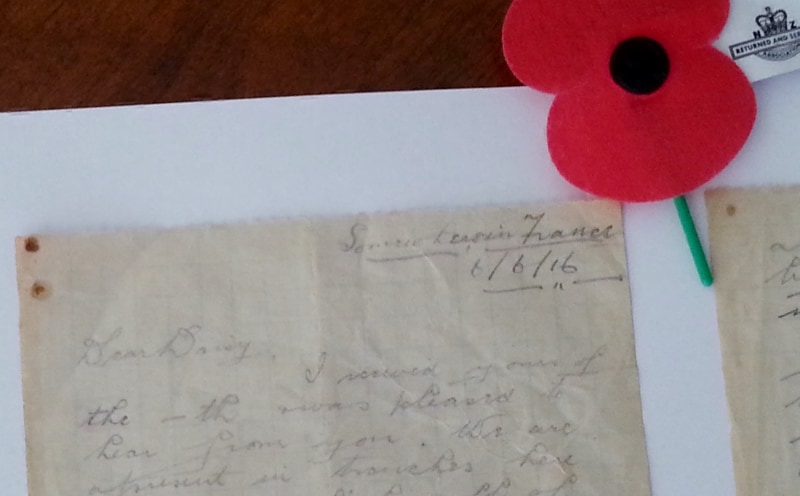 N Z
RETURNED AND SER
ASSOCIATION
Somewhere in France
6/6/16
Dear Daisy,
I received yours of
the - th & was pleased to
hear from you. We are
at present in trenches here